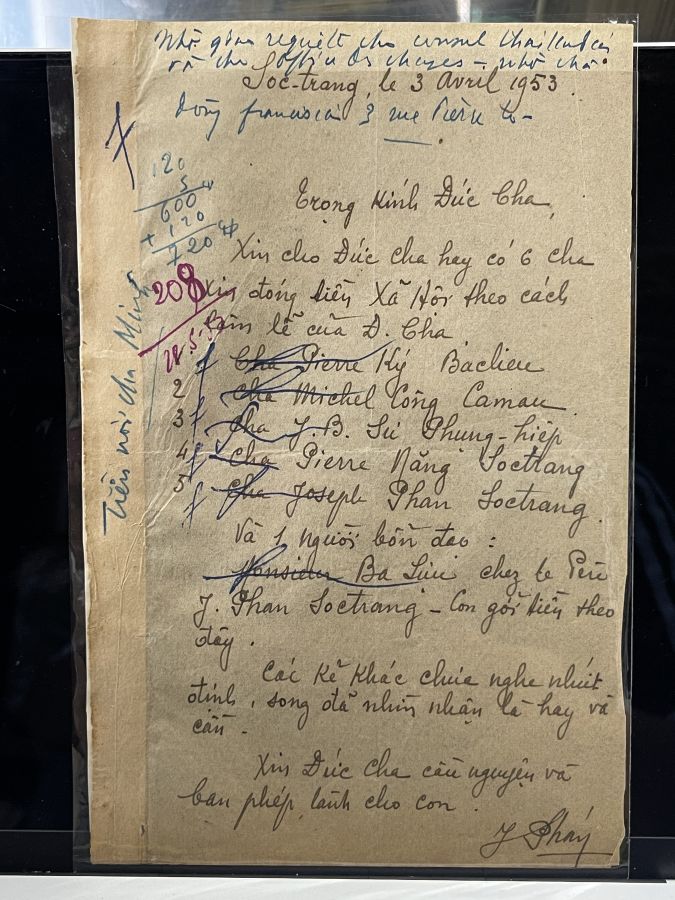 Nhờ gìm requête cho consul
và cho Office des changes – nhờ cha
Soc-trang, le 3 Avril 1953.
dòng franciscain 3 rue Pierre
120
5
600
+ 120
720
Trọng Kính Đức Cha,
Xin cho Đức cha hay có 6 cha
208
Xin đóng tiền Xã Hội theo cách
làm lễ của Đ. Cha
28.5.53
1 Cha Pierre Ký Baclieu
2 Cha Michel Công Camau
3 Cha J.B. Sú Phung-hiêp
4 Cha Pierre Năng Soctrang
5 Cha Joseph Phan Soctrang.
Và 1 người bổn đạo :
Monsieur Ba chez le Père
J. Phan Soctrang – Con gởi tiền theo
đây.
Các Kẻ Khác chưa nghe nhứt
định, song đã nhìn nhận là hay và
cần.
Xin Đức Cha cầu nguyện và
ban phép lành cho con.
J Phán
Tiền nơi cha Minh